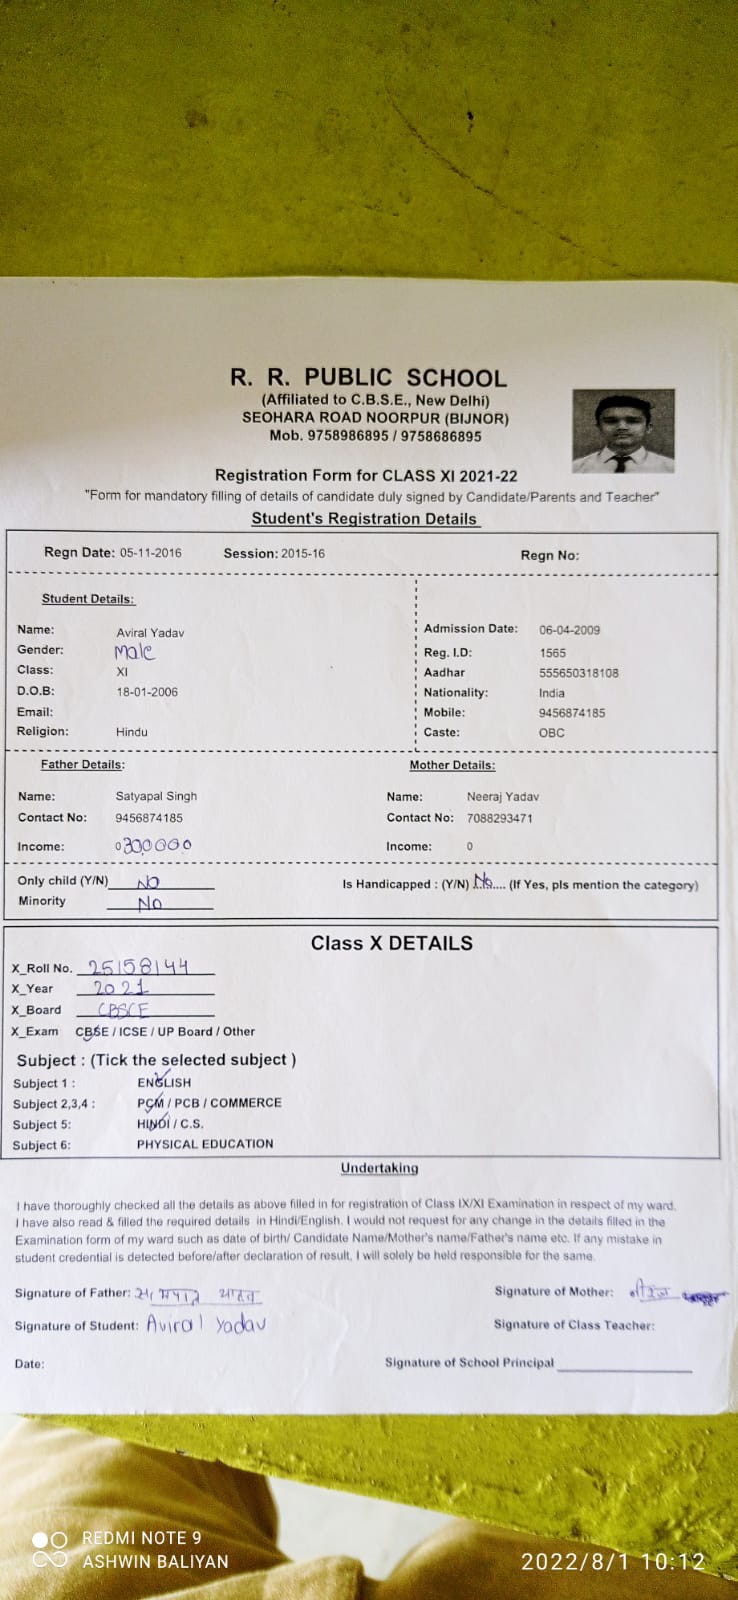 R. R. PUBLIC SCHOOL
(Affiliated to C.B.S.E., New Delhi)
SEOHARA ROAD NOORPUR (BIJNOR)
Mob. 9758986895 / 9758686895
Registration Form for CLASS XI 2021-22
"Form for mandatory filling of details of candidate duly signed by Candidate/Parents and Teacher"
Student's Registration Details
Regn Date: 05-11-2016 Session: 2015-16 Regn No:
Student Details:
Name: Aviral Yadav Admission Date: 06-04-2009
Gender: Male Reg. I.D: 1565
Class: XI Aadhar 555650318108
D.O.B: 18-01-2006 Nationality: India
Email: Mobile: 9456874185
Religion: Hindu Caste: OBC
Father Details: Mother Details:
Name: Satyapal Singh Name: Neeraj Yadav
Contact No: 9456874185 Contact No: 7088293471
Income: 0300000 Income: 0
Only child (Y/N) NO Is Handicapped : (Y/N) No.... (If Yes, pls mention the category)
Minority No
Class X DETAILS
X_Roll No. 25158144
X_Year 2021
X_Board CBSCE
X_Exam CBSE / ICSE / UP Board / Other
Subject : (Tick the selected subject )
Subject 1 : ENGLISH
Subject 2,3,4 : PCM / PCB / COMMERCE
Subject 5: HINDI / C.S.
Subject 6: PHYSICAL EDUCATION
Undertaking
I have thoroughly checked all the details as above filled in for registration of Class IX/XI Examination in respect of my ward.
I have also read & filled the required details in Hindi/English. I would not request for any change in the details filled in the
Examination form of my ward such as date of birth/ Candidate Name/Mother's name/Father's name etc. If any mistake in
student credential is detected before/after declaration of result, I will solely be held responsible for the same.
Signature of Father: यादव Signature of Mother: नीरज
Signature of Student: Aviral Yadav Signature of Class Teacher:
Date: Signature of School Principal
REDMI NOTE 9
ASHWIN BALIYAN
2022/8/1 10:12